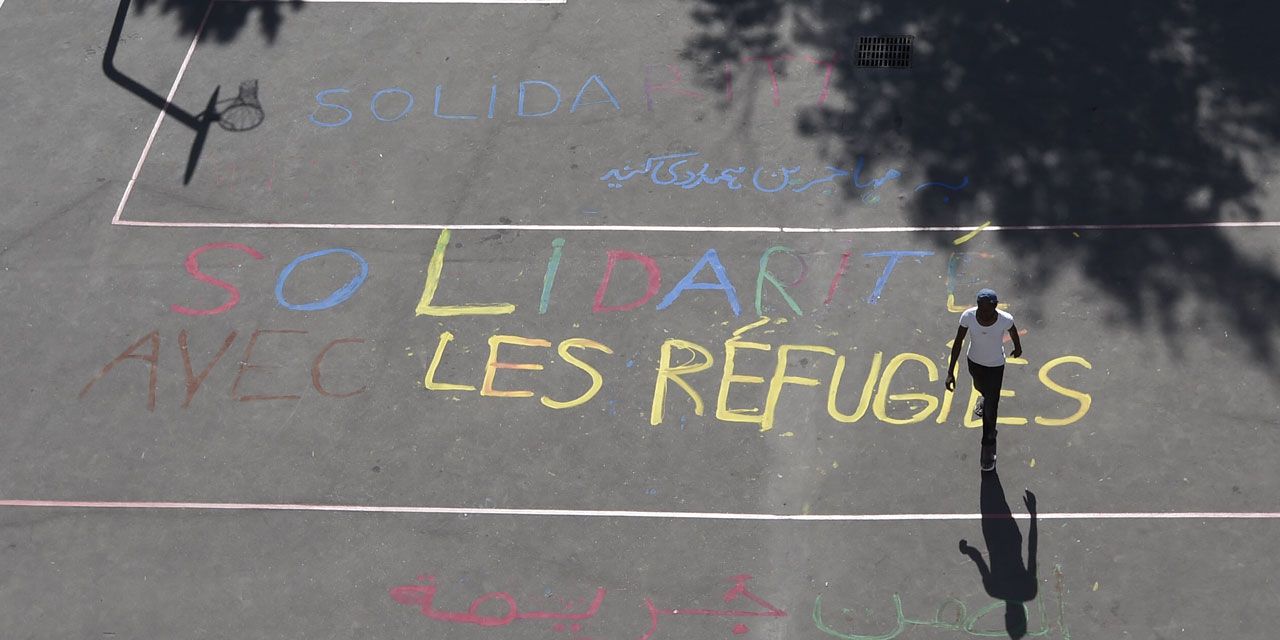 SOLIDARITY
با مهاجرین همدردی کنید
SOLIDARITÉ
AVEC LES RÉFUGIÉS
الصمت جريمة